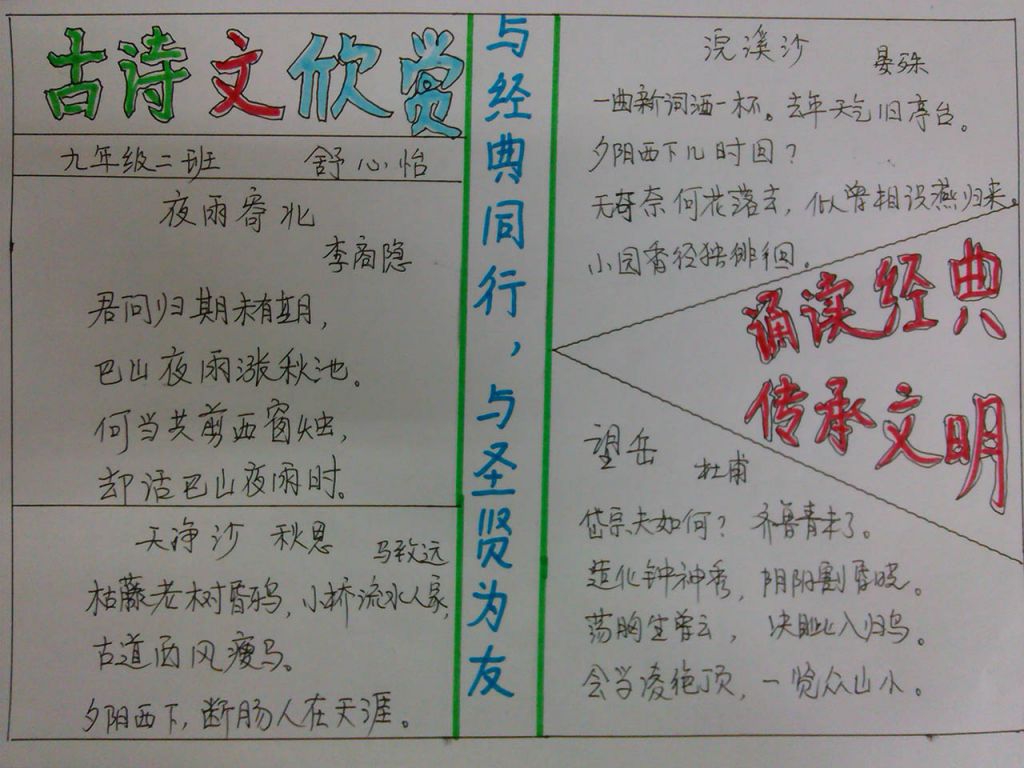 古诗文欣赏
九年级二班 舒心怡
夜雨寄北
李商隐
君问归期未有期，
巴山夜雨涨秋池。
何当共剪西窗烛，
却话巴山夜雨时。
天净沙 秋思 马致远
枯藤老树昏鸦，小桥流水人家，
古道西风瘦马。
夕阳西下，断肠人在天涯。
与经典同行，与圣贤为友
浣溪沙 晏殊
一曲新词酒一杯。去年天气旧亭台。
夕阳西下几时回？
无可奈何花落去，似曾相识燕归来。
小园香径独徘徊。
诵读经典
传承文明
望岳 杜甫
岱宗夫如何？齐鲁青未了。
造化钟神秀，阴阳割昏晓。
荡胸生曾云，决眦入归鸟。
会当凌绝顶，一览众山小。